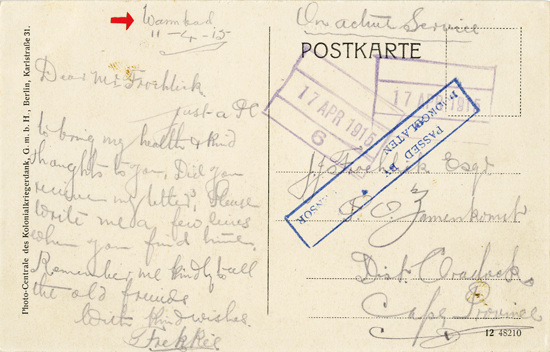 Warmbad
11-4-15
Dear Mr Froehlick
Just a PC
to bring my health & kind
thoughts to you. Did you
receive my letter? Please
write me a few lines
when you find time.
Remember me kindly to all
the old friends
With kind wishes
Photo-Centrale des Kolonialkriegerdank, G. m. b. H., Berlin, Karlstraße 31.
On active Service
POSTKARTE
17 APR 1915
6
17 APR 1915
PASSED BY
DOORGELATEN
CENSOR
J. Froehlick Esqr
P.O. Zamenkomst
Dist. Cradock
Cape Province
12 48210